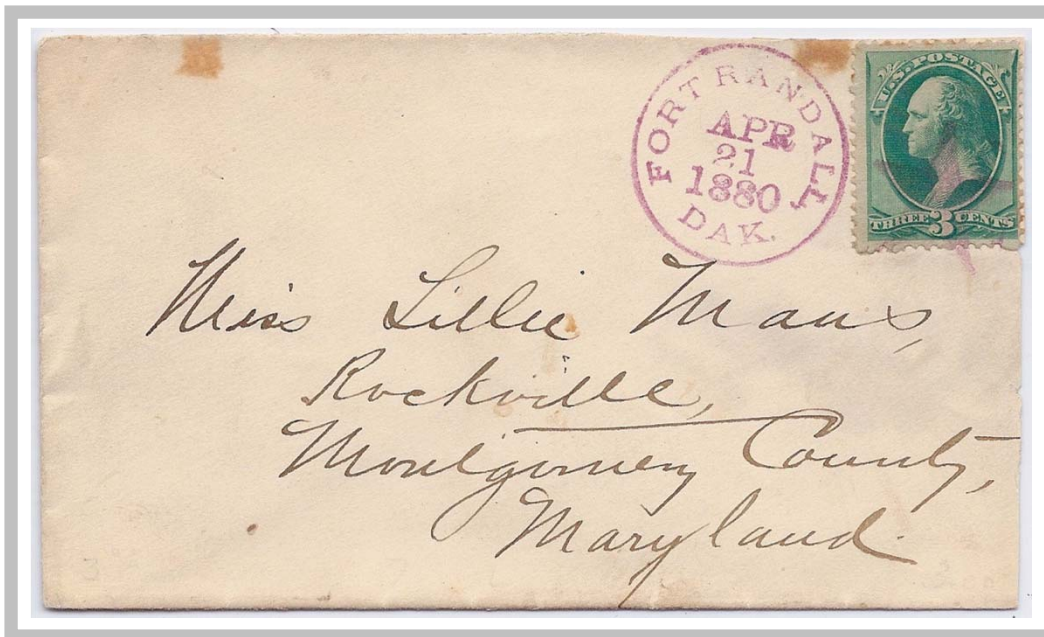 FORT RANDALL
APR
21
1880
DAK.
U.S. POSTAGE
THREE 3 CENTS
Miss Lillie Maus,
Rockville,
Montgomery County,
Maryland.